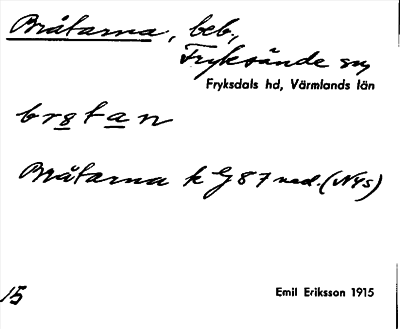 Bråtarna, beb.,
Fryksände sn
Fryksdals hd, Värmlands län
brotan
Bråtarna k G 87 ned. (NYs)
15
Emil Eriksson 1915